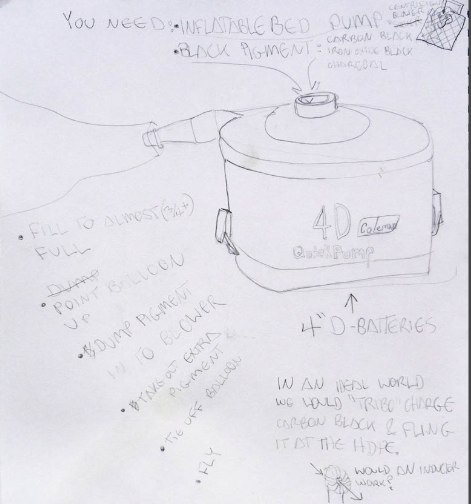 YOU NEED: • INFLATABLE BED PUMP
• BLACK PIGMENT: CARBON BLACK
IRON OXIDE BLACK
CHARCOAL
4D Coleman
QuickPump
• FILL TO ALMOST (3/4+)
FULL
DUMP
• POINT BALLOON
UP
• DUMP PIGMENT
IN TO BLOWER
• TAKE OUT EXTRA
PIGMENT
• TIE OFF BALLOON
• FLY
4 "D-BATTERIES
IN AN IDEAL WORLD
WE WOULD "TRIBO" CHARGE
CARBON BLACK & FLING
IT AT THE HDPE.
WOULD AN INDUCTOR
WORK?